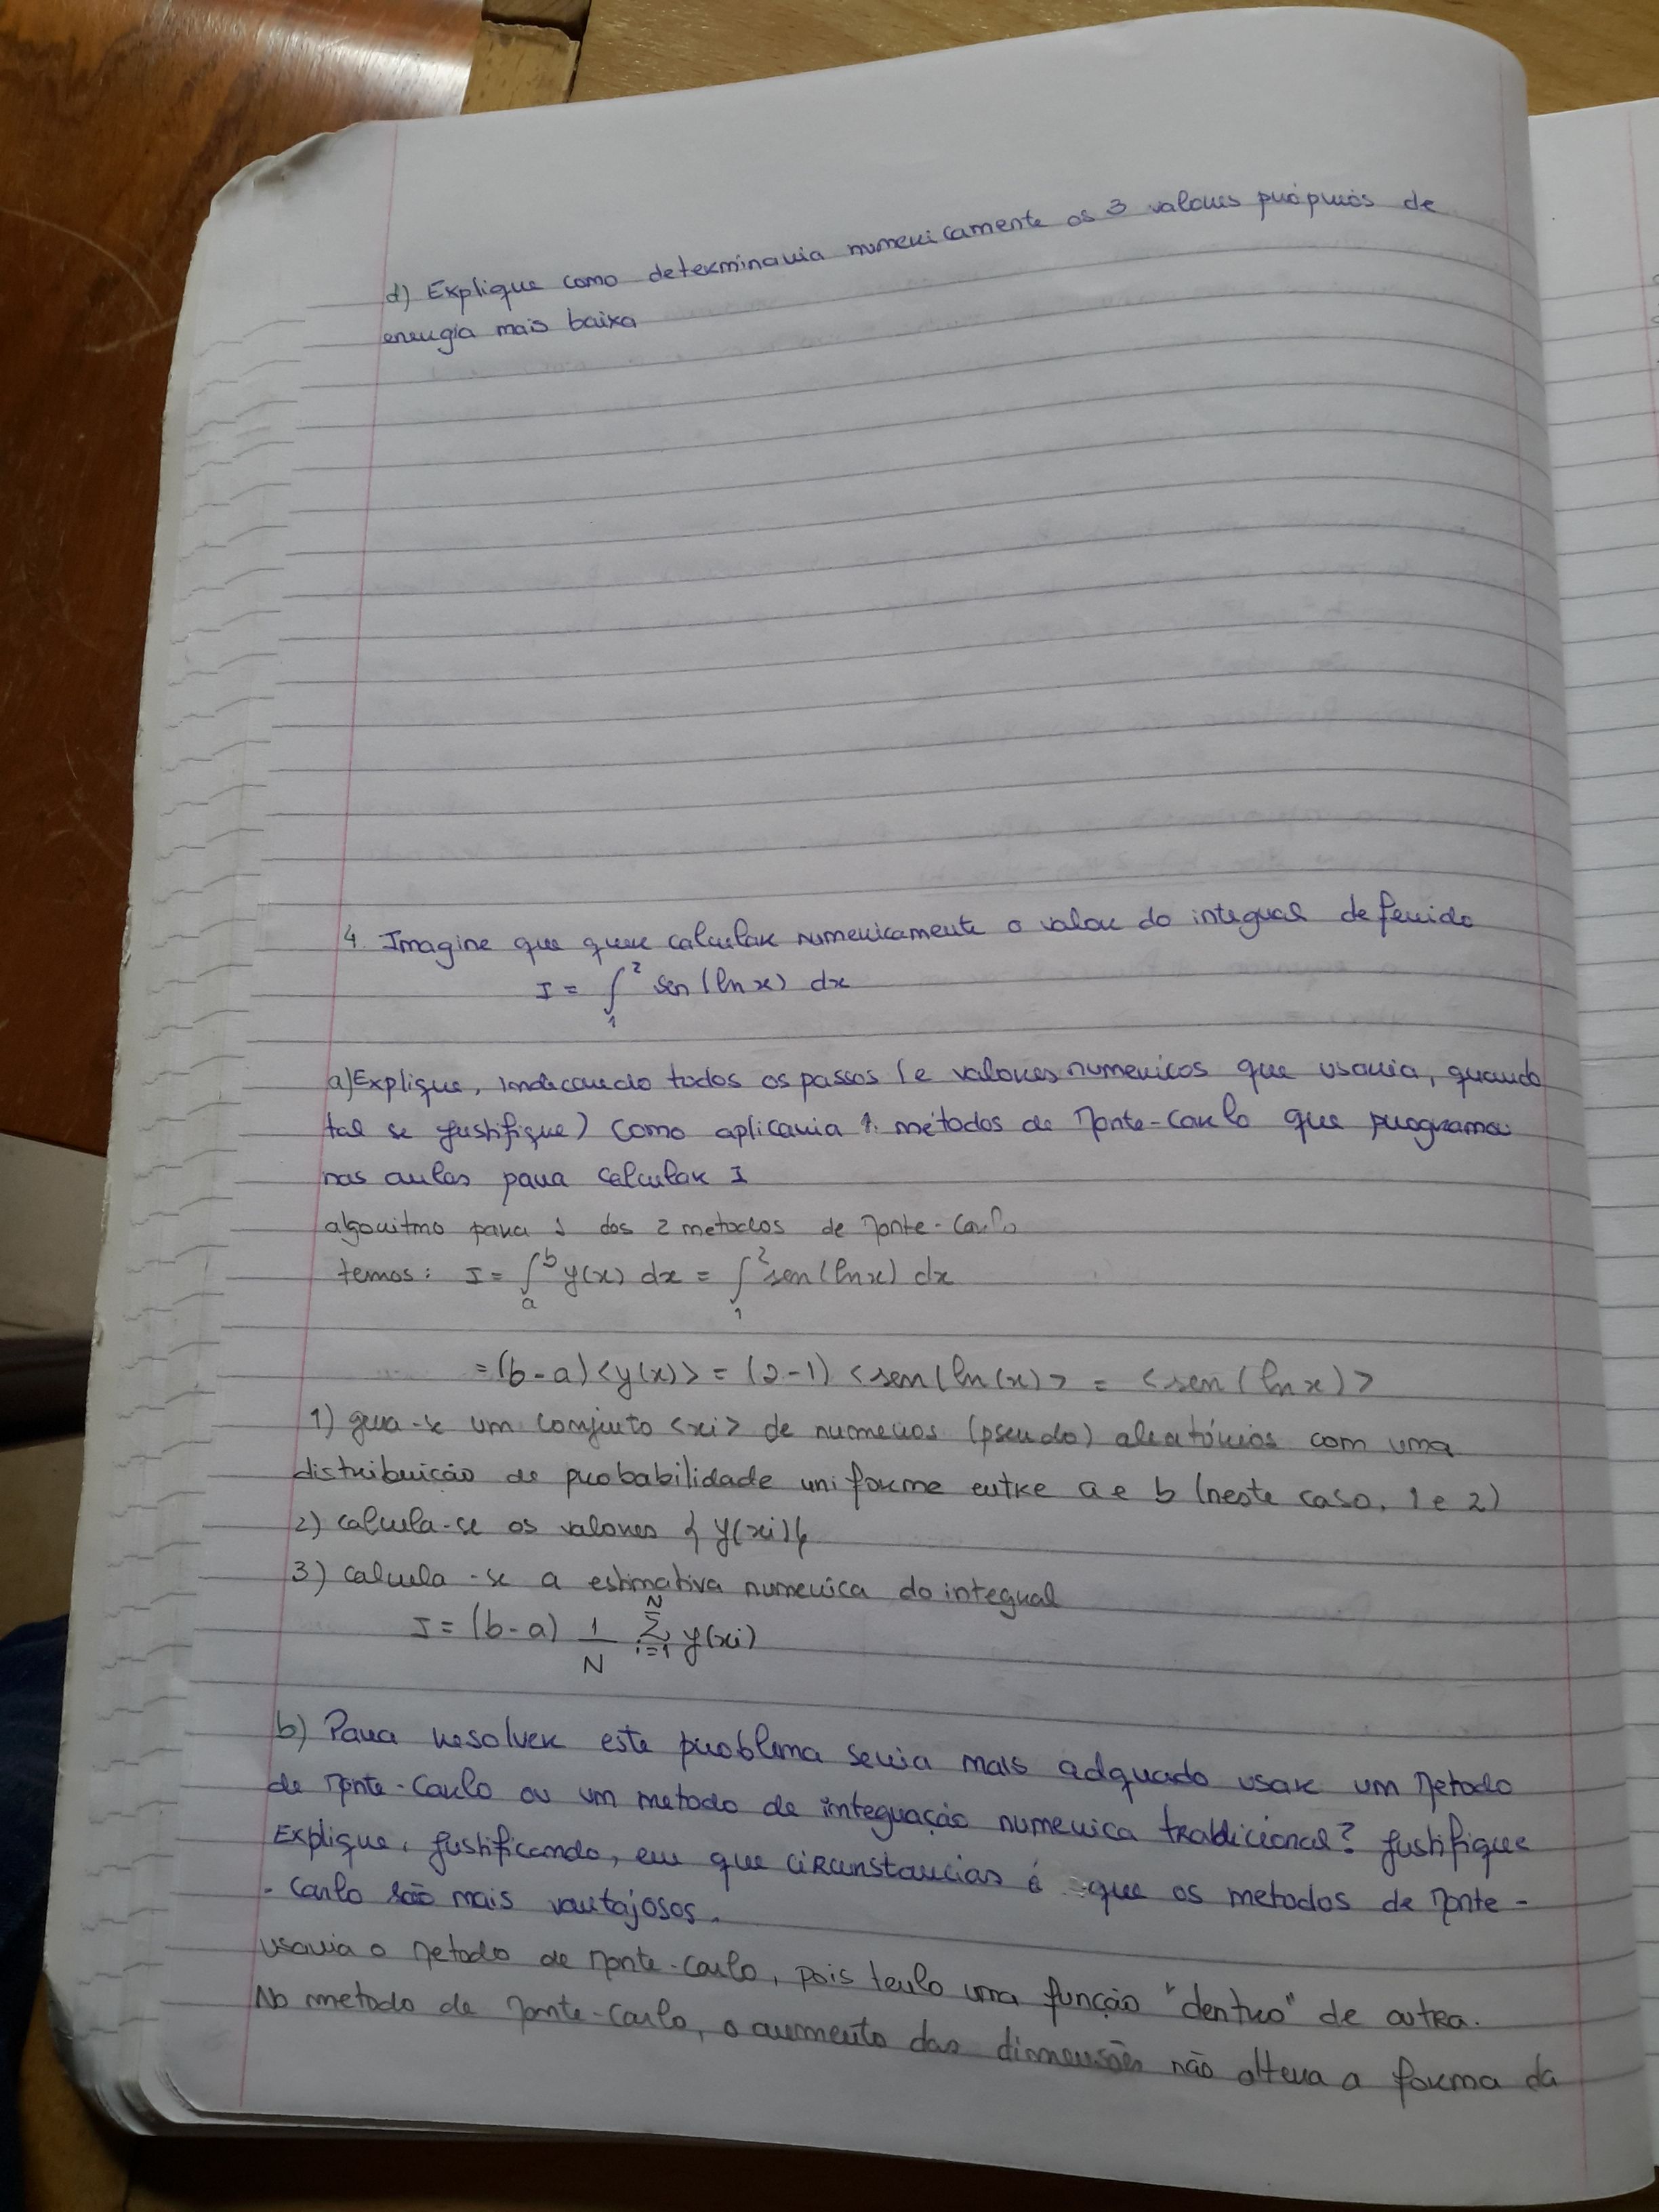 d) Explique como determinaria numericamente os 3 valores próprios de
energia mais baixa
4. Imagine que quer calcular numericamente o valor do integral defenido
I = ∫₁² sen (ln x) dx
a) Explique, indicando todos os passos (e valores numericos que usaria, quando
tal se justifique) como aplicaria 1. métodos de Monte-Carlo que programa
nas aulas para calcular I
algoritmo para 1 dos 2 metodos de Monte-Carlo
temos: I = ∫ₐᵇ y(x) dx = ∫₁² sen(ln x) dx
= (b-a) <y(x)> = (2-1) <sen(ln(x)> = <sen(ln x)>
1) gera-se um conjunto <xi> de numeros (pseudo) aleatórios com uma
distribuição de probabilidade uniforme entre a e b (neste caso, 1 e 2)
2) calcula-se os valores { y(xi)}
3) calcula-se a estimativa numerica do integral
I = (b-a) 1/N Σᵢ₌₁ᴺ y(xi)
b) Para resolver este problema seria mais adquado usar um Metodo
de Monte-Carlo ou um metodo de integração numerica tradicional? Justifique
Explique, justificando, em que circunstancias é que os metodos de Monte-
-Carlo são mais vantajosos.
usaria o Metodo de Monte-Carlo, pois tenho uma função "dentro" de outra.
No metodo de Monte-Carlo, o aumento das dimensões não altera a forma da